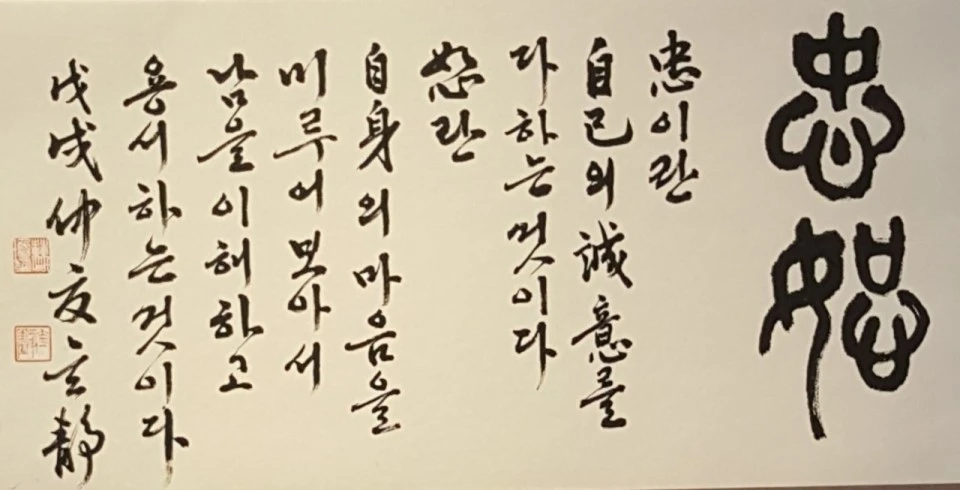 忠恕
忠이란
自己의 誠意를
다하는 것이다
恕란
自身의 마음을
미루어 보아서
남을 이해하고
용서하는 것이다
戊戌仲夏 玄靜